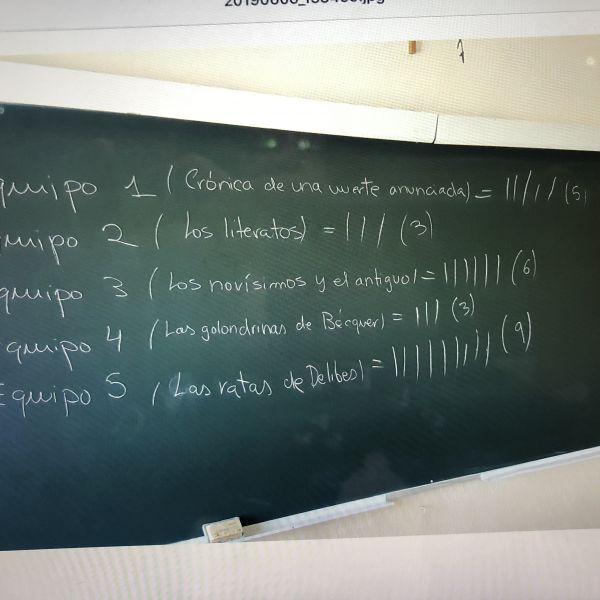 quipo 1 (Crónica de una muerte anunciada) = ||||| (5)
quipo 2 (Los literatos) = ||| (3)
quipo 3 (Los novísimos y el antiguo) = |||||| (6)
quipo 4 (Las golondrinas de Bécquer) = ||| (3)
Equipo 5 (Las ratas de Delibes) = ||||||||| (9)